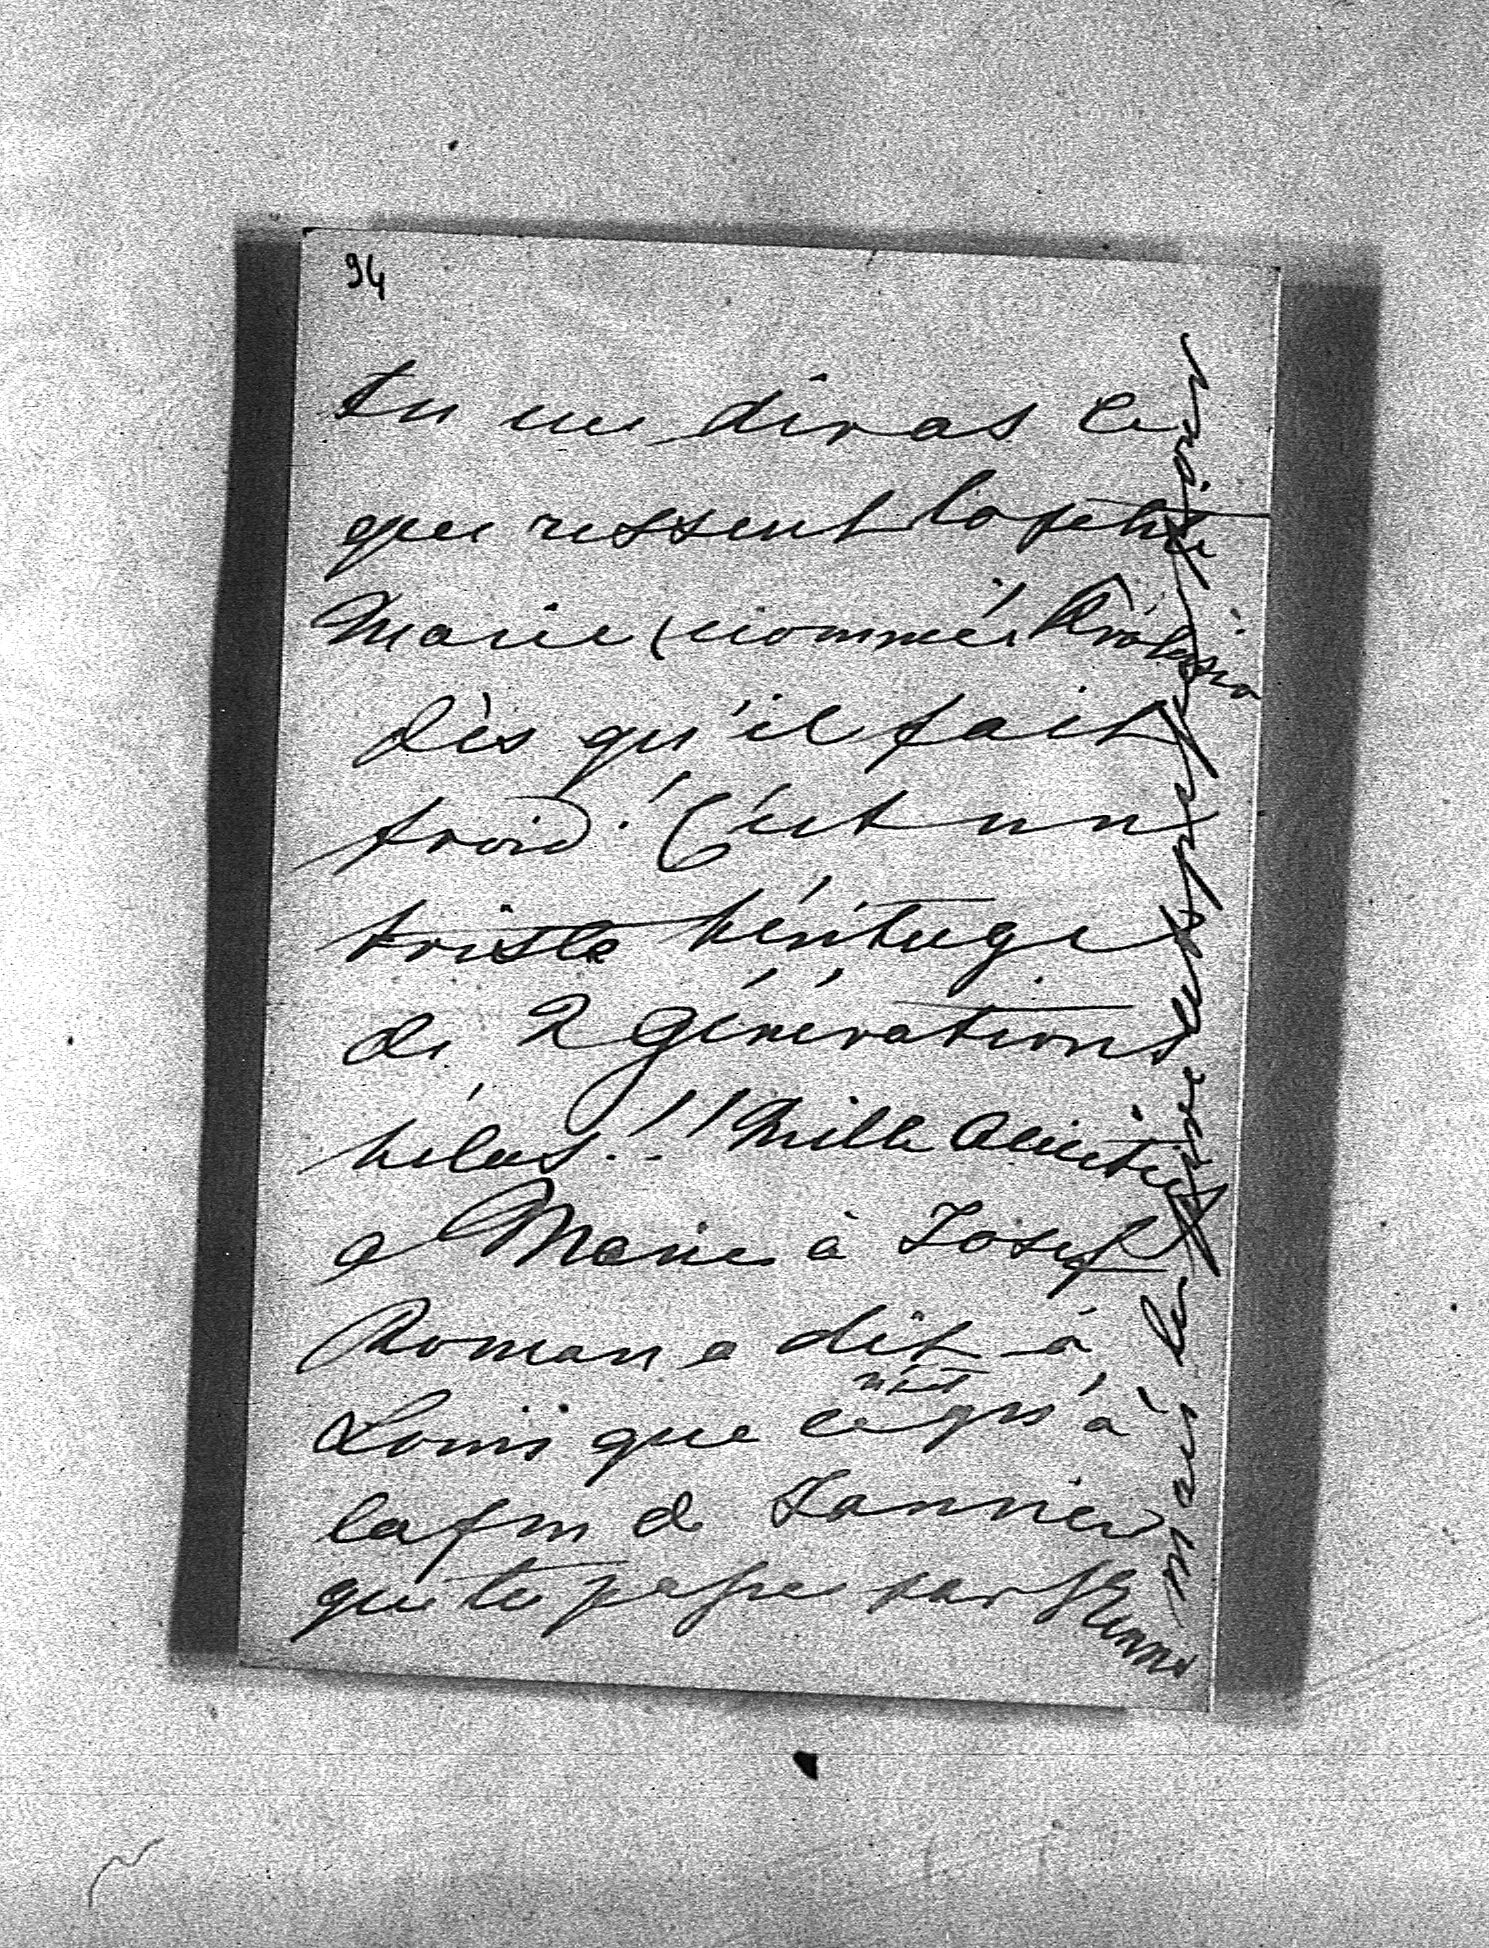 94
tu me diras ce
que ressent la petite
Marie (nommée
dès qu'il fait
froid. C'est un
triste héritage
de 2 générations
hélas!! Mille amitiés
a Marie à Josef
Roman a dit à
Louis que ce n'est qu'à
la fin de Janvier
que tu passes par Vienne
mais le